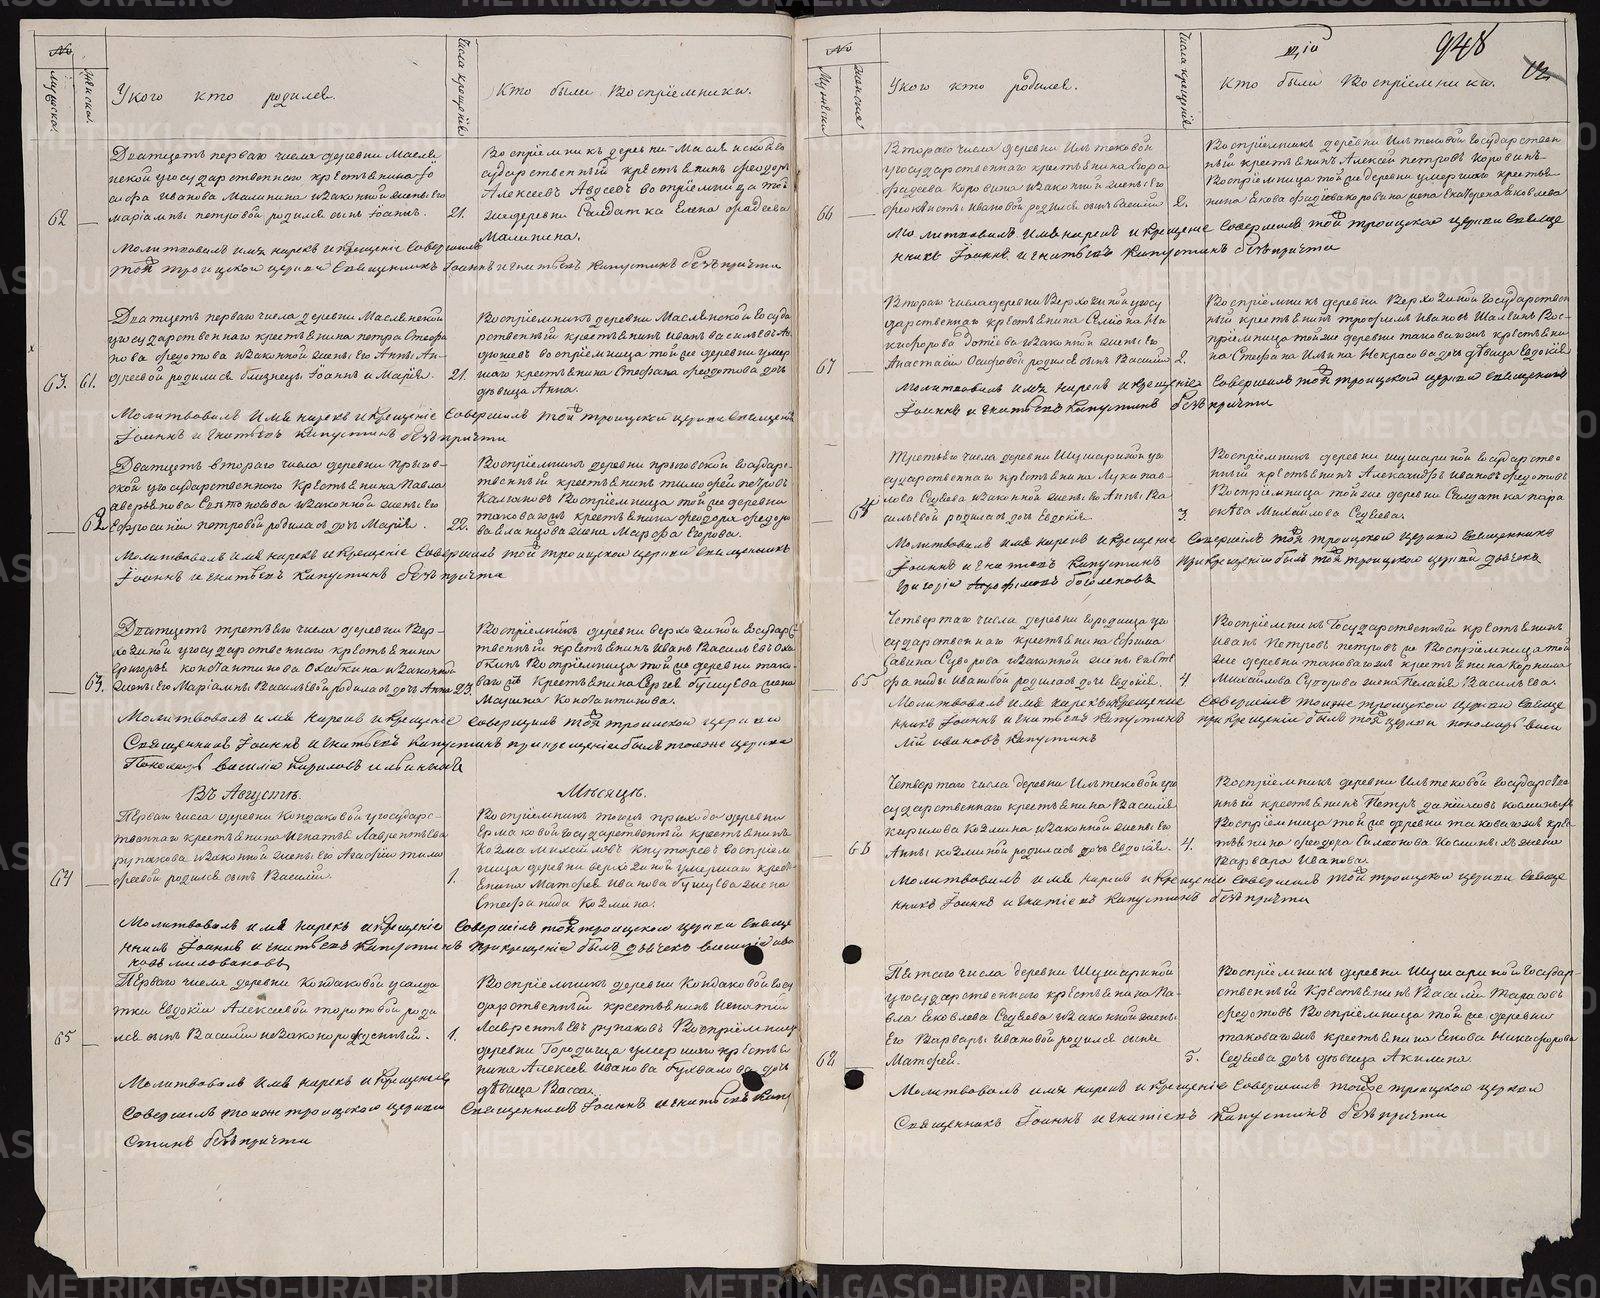 №
Мужска.
Женска.
У кого кто родился.
Числа крещенія
Кто были Воспріемники.
Дватцеть перваго числа деревни Масля
нской у государственнаго крестьянина Іо
сифа Иванова Малинина изаконной жены его
62 — маріамны петровой родился сынъ Іоаннъ. 21.
Воспріемникъ деревни Маслянской го
сударственный крестьянинъ феодоръ
Алексеевъ Авдеевъ воспріемница той
же деревни Салдатка Елена фадеева
Малинина.
Молитвовалъ имя нарекъ и крещеніе Совершилъ
той троицкой церкви Священникъ Іоаннъ игнатьевъ Капустинъ безъ причта
Дватцеть перваго числа деревни Маслянской
угосударственнаго крестьянина петра Стефа
нова федотова изаконной жены его Анны Ан-
63. 61. дреевой родились близнецы Іоаннъ и Марія. 21.
Воспріемникъ деревни Маслянской Госуда
рственный крестьянинъ иванъ васильевъ
воспріемница той же деревни умер
шаго крестьянина Стефана федотова дочь
дѣвица Анна.
Молитвовалъ Имя нарекъ и крещеніе Совершилъ той троицкой церкви Священникъ
Іоаннъ игнатьевъ Капустинъ безъ причта
Дватцеть втораго числа деревни
ской у государственнаго Крестьянина Павла
аверьянова изаконной жены его
— 62. Ефросиніи петровой родилась дочь Марія. 22.
Воспріемникъ деревни Государс-
твенный крестьянинъ тимофей петровъ
Воспріемница той же деревни
таковагожъ крестьянина феодора федоро
ва жена Марфа Егорова.
Молитвовалъ имя нарекъ и крещеніе Совершилъ той троицкой церкви священникъ
Іоаннъ игнатьевъ Капустинъ безъ причта
Дватцеть третьяго числа деревни Вер-
хозиной угосударственнаго крестьянина
Григорья константинова изаконной
— 63. жены его Маріамны Васильевой родилась дочь Анна 23.
Воспріемникъ деревни верхозиной Государс
твенный крестьянинъ Иванъ Васильевъ
Воспріемница той же деревни тако
вагожъ Крестьянина Сергея жена
Марина Константинова.
Молитвовалъ имя нарекъ и крещеніе совершилъ той троицкой церкви
Священникъ Іоаннъ игнатьевъ Капустинъ при крещеніи былъ тояже церкви
Пономарь василій кириловъ
Въ Августѣ. Мѣсяцѣ.
Перваго числа деревни Кондаковой угосударс-
твеннаго крестьянина Игнатья Лаврентьева
рупакова изаконной жены его Агафіи тимо
64 — феевой родился сынъ Василій. 1.
Воспріемникъ тогожъ прихода деревни
Ермаковой государственный крестьянинъ
Козма михайловъ воспріем
ница деревни верхозиной умершаго крест
янина Матфея Иванова жена
Стефанида Козмина.
Молитвовалъ имя нарекъ и крещеніе Совершилъ той троицкой церкви Священ
никъ Іоаннъ игнатьевъ Капустинъ при крещеніи былъ дьячекъ василій ива
новъ миловановъ
Перваго числа деревни Кондаковой у солда
тки Евдокіи Алексеевой торотовой роди
65 — лся сынъ Василій незаконорожденный. 1.
Воспріемникъ деревни Кондаковой Госу
дарственный крестьянинъ Игнатій
Лаврентьевъ рупаковъ Воспріемница
деревни Городища умершаго крестья
нина Алексея Иванова дочь
дѣвица Васса.
Молитвовалъ Имя нарекъ и Крещеніе
Совершилъ тоиже троицкой церкви Священникъ Іоаннъ игнатьевъ Капу
стинъ безъ причта
№
Мужска
Женска
У кого кто родился.
Числа крещенія
948
Кто были Воспріемники.
Втораго числа деревни Ильтековой
угосударственнаго крестьянина
фадеева Коровина изаконной жены его
66 — феоктисты Ивановой родился сынъ Василій 2.
Воспріемникъ деревни Ильтековой Государствен
ный крестьянинъ Алексей петровъ Коровинъ
Воспріемница той же деревни умершаго крестья
нина Якова фадеева коровина жена Екатерина Яковлева
Молитвовалъ Имя нарекъ и крещеніе Совершилъ той троицкой церкви Свяще
нникъ Іоаннъ игнатьевъ Капустинъ безъ причта
Втораго числа деревни Верхозиной угосу
дарственнаго крестьянина Симіона Ни
кифорова изаконной жены его
67 — Анастасіи Осиповой родился сынъ Василій 2.
Воспріемникъ деревни Верхозиной Государствен
ный крестьянинъ трофимъ Ивановъ Вос-
пріемница той же деревни таковагожъ крестьяни
на Стефана Ильина Некрасова дочь дѣвица Евдокія
Молитвовалъ имя нарекъ и крещеніе Совершилъ той троицкой церкви священникъ
Іоаннъ игнатьевъ Капустинъ безъ причта
Третьяго числа деревни Шушариной уго
сударственнаго крестьянина Луки пав-
лова Седяева изаконной жены его Анны Ва
64 сильевой родилась дочь Евдокія. 3.
Воспріемникъ деревни шушариной Государстве
нный крестьянинъ Александръ ивановъ федотовъ
Воспріемница той же деревни Салдатка пара
скева Михайлова Седяева.
Молитвовалъ имя нарекъ и крещеніе Совершилъ той троицкой церкви священникъ
Іоаннъ игнатьевъ Капустинъ При крещеніи былъ той троицкой церкви дьячекъ
григорій боголеповъ
Четвертаго числа деревни городища уго
сударственнаго крестьянина Ефима
Савина Суворова изаконной жены его Сте
65 фаниды Ивановой родилась дочь Евдокія. 4.
Воспріемникъ Государственный крестьянинъ
иванъ Петровъ Воспріемница той
же деревни таковагожъ крестьянина Корнила
Михайлова Суворова жена Пелагія Васильева.
Молитвовалъ имя нарекъ и крещеніе Совершилъ тоиже троицкой церкви Свяще
нникъ Іоаннъ игнатьевъ Капустинъ при крещеніи былъ той церкви пономарь васи
лій ивановъ Капустинъ
Четвертаго числа деревни Ильтековой уго
сударственнаго крестьянина Василья
Кирилова Козмина изаконной жены его
66 — Анны козминой родилась дочь Евдокія. 4.
Воспріемникъ деревни Ильтековой государстве
нный крестьянинъ Петръ даниловъ
Воспріемница той же деревни таковагожъ крес
тьянина феодора Симеонова жена
Варвара Иванова.
Молитвовалъ имя нарекъ и крещеніе Совершилъ той троицкой церкви Свяще
нникъ Іоаннъ игнатіевъ Капустинъ безъ причта
Пятаго числа деревни Шушариной
угосударственнаго крестьянина Па-
вла Яковлева Седяева изаконной жены
Его Варвары ивановой родился сынъ
68 — Матфей. 5.
Воспріемникъ деревни Шушариной Государ-
ственный Крестьянинъ Василій Тарасовъ
федотовъ Воспріемница той же деревни
таковагожъ крестьянина Якова Никифорова
Седяева дочь дѣвица Акилина
Молитвовалъ имя нарекъ и крещеніе Совершилъ тоиже троицкой церкви
Священникъ Іоаннъ игнатіевъ Капустинъ безъ причта
METRIKI.GASO-URAL.RU